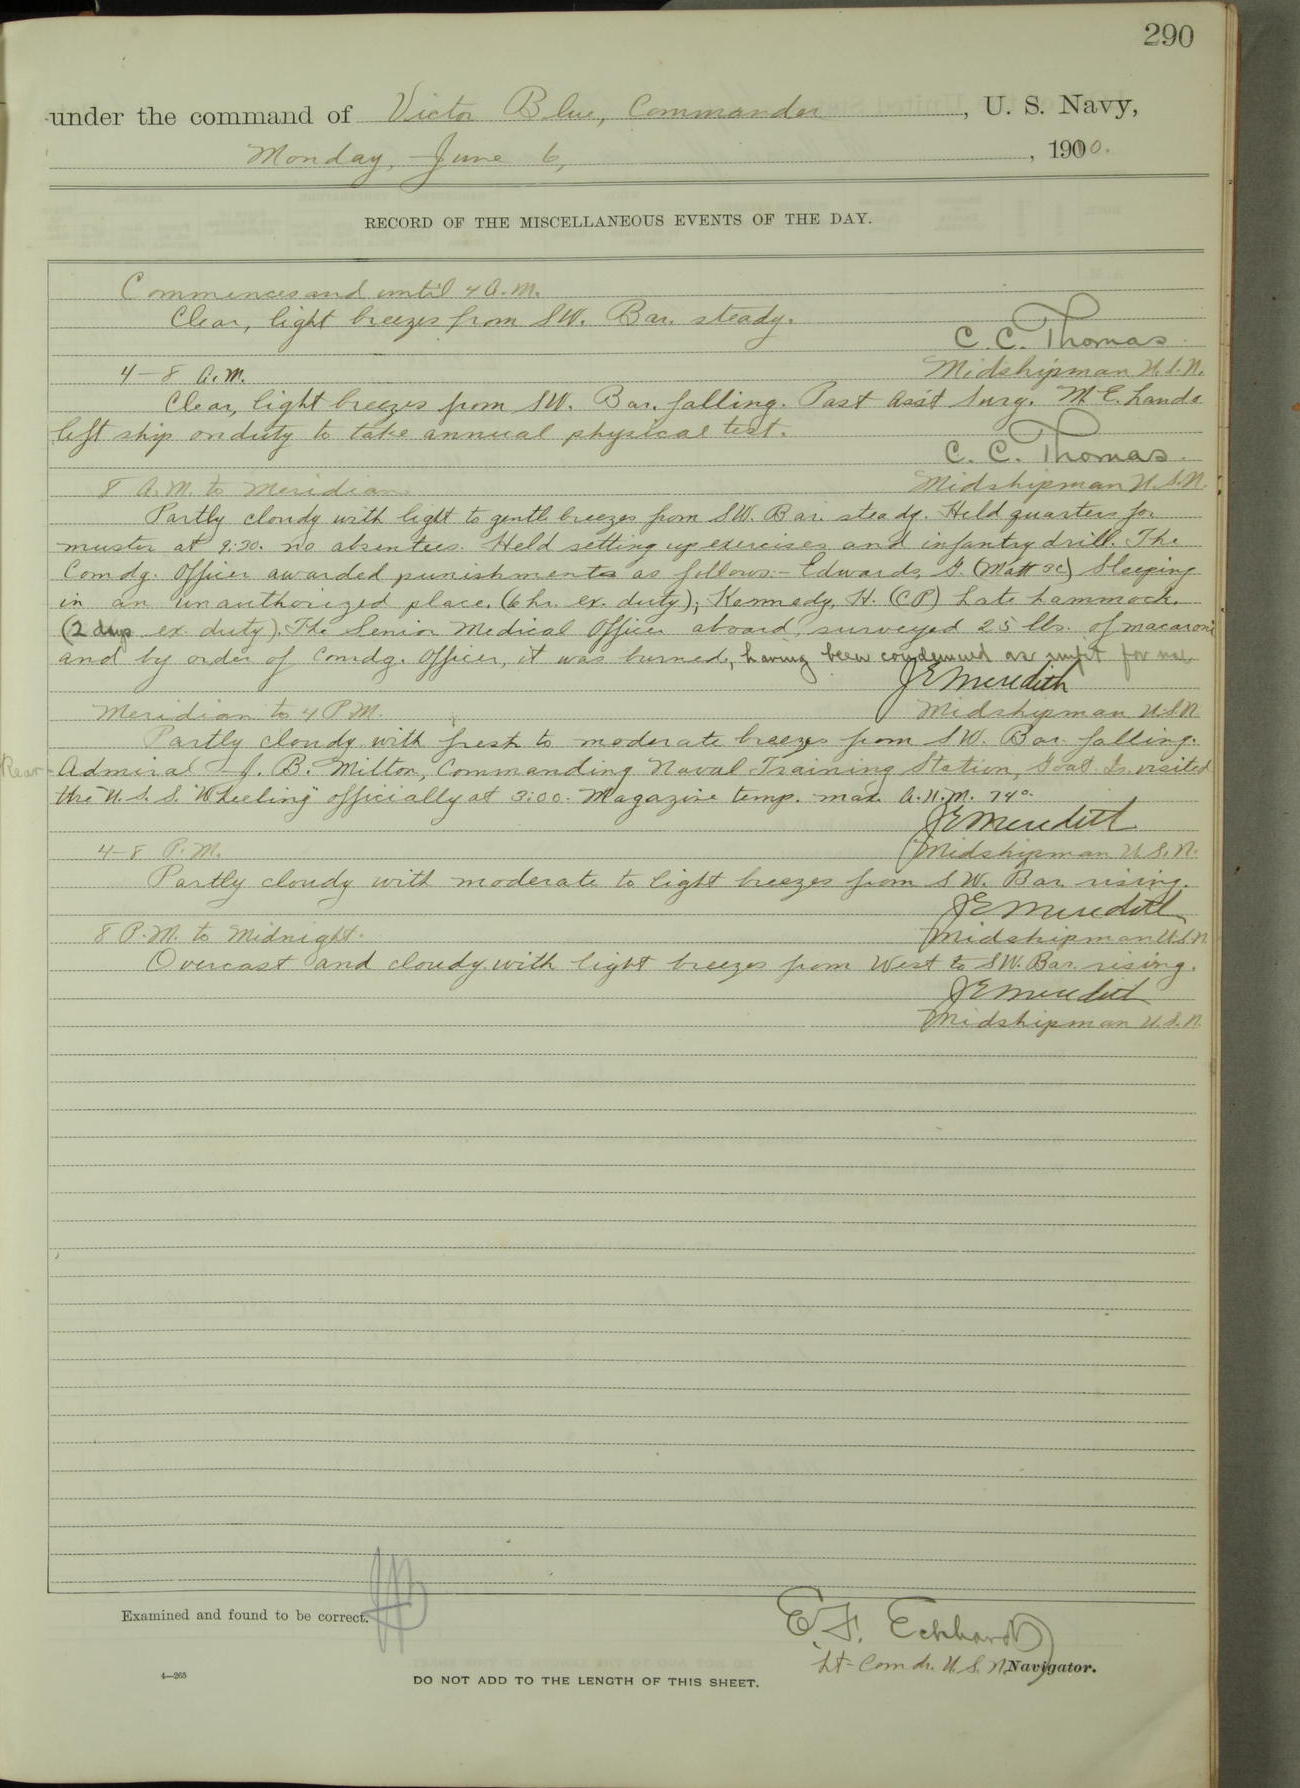 290
under the command of Victor Blue, Commander, U. S. Navy,
Monday, June 6, 1910.
RECORD OF THE MISCELLANEOUS EVENTS OF THE DAY.
Commences and until 4 A.M.
Clear, light breezes from SW. Bar. steady.
C. C. Thomas
Midshipman U.S.N.
4–8 A.M.
Clear, light breezes from SW. Bar. falling. Past Ass't Surg. M. E. Lando
left ship on duty to take annual physical test.
C. C. Thomas.
Midshipman U.S.N.
8 A.M. to Meridian
Partly cloudy with light to gentle breezes from SW. Bar. steady. Held quarters for
muster at 9:30. no absentees. Held setting up exercises and infantry drill. The
Comdg. Officer awarded punishments as follows:– Edwards, G. (Matt 3c) Sleeping
in an unauthorized place. (6 hr. ex. duty); Kennedy, H. (CP) Late hammock.
(2 days ex. duty). The Senior Medical Officer aboard, surveyed 25 lbs. of macaroni
and by order of Comdg. Officer, it was burned, having been condemned as unfit for use.
J E Meredith
Midshipman U.S.N
Meridian to 4 P.M.
Partly cloudy with fresh to moderate breezes from SW. Bar. falling.
Rear-Admiral J. B. Milton, Commanding Naval Training Station, Goat Is. visited
the U.S.S. "Wheeling" officially at 3:00. Magazine temp. max. A.H.M. 74°.
J E Meredith
Midshipman U.S.N.
4–8 P.M.
Partly cloudy with moderate to light breezes from SW. Bar. rising.
J E Meredith
Midshipman U.S.N
8 P.M. to Midnight.
Overcast and cloudy with light breezes from West to SW. Bar. rising.
J E Meredith
Midshipman U.S.N.
Examined and found to be correct.
E. F. Eckhardt
Lt-Comdr. U.S.N. Navigator.
4—265
DO NOT ADD TO THE LENGTH OF THIS SHEET.